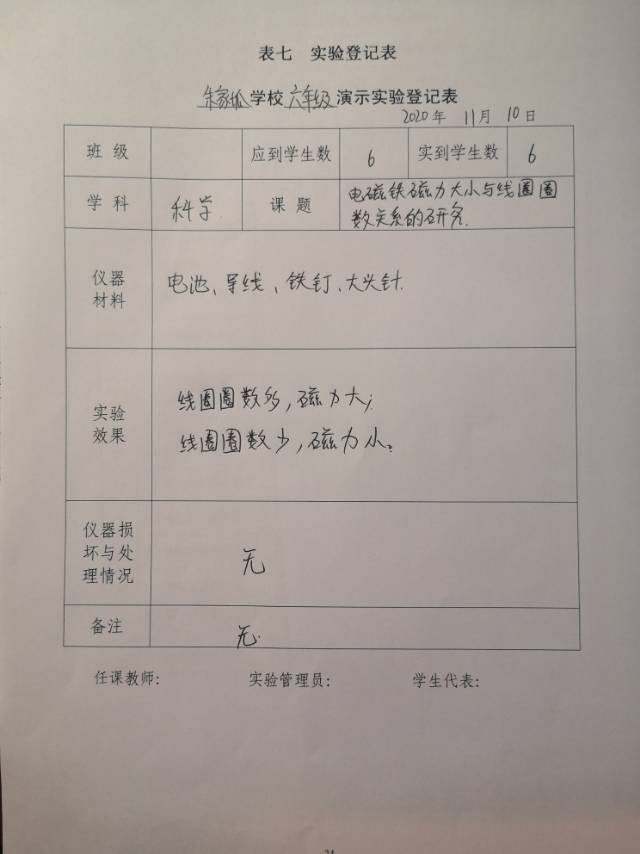 表七 实验登记表
朱家 学校 六年级 演示实验登记表
2020年 11月 10日
班 级 应到学生数 6 实到学生数 6
学 科 科学 课 题 电磁铁磁力大小与线圈圈
数关系的研究.
仪器
材料
电池、导线、铁钉、大头针.
实验
效果
线圈圈数多,磁力大;
线圈圈数少,磁力小。
仪器损
坏与处
理情况
无
备注
无.
任课教师: 实验管理员: 学生代表: